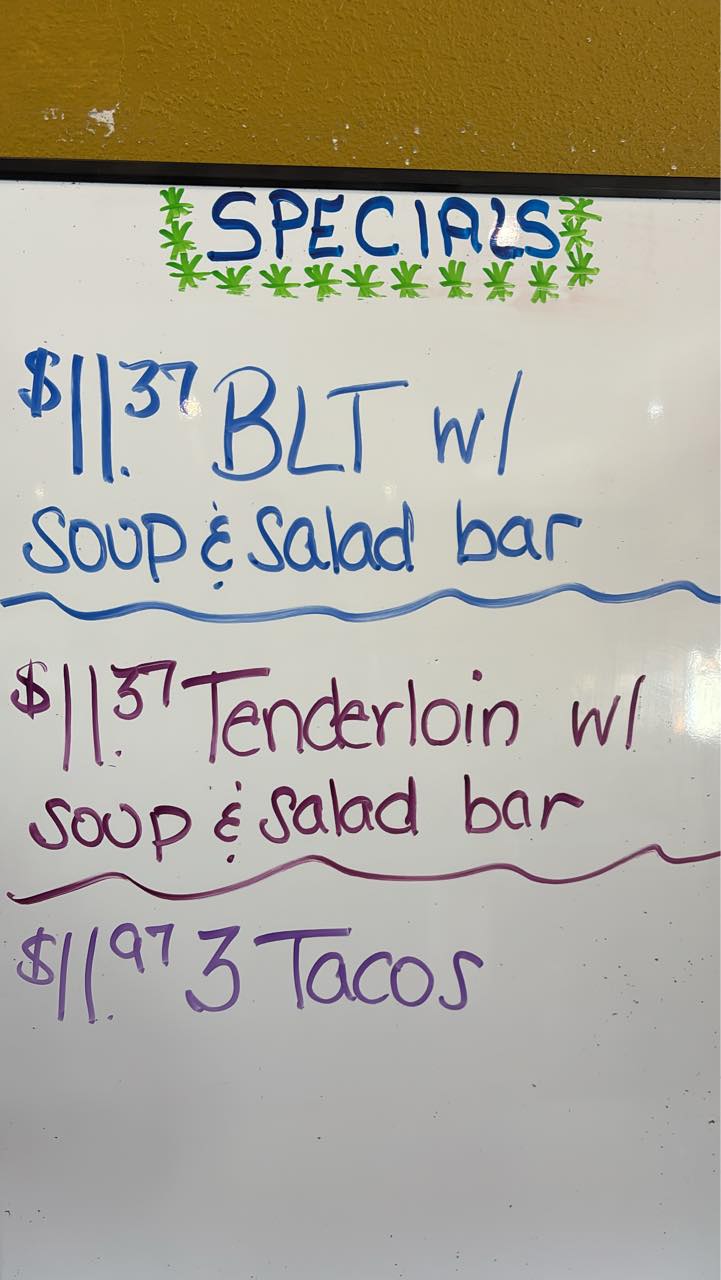 SPECIALS
$11.37 BLT w/
soup & salad bar
$11.37 Tenderloin w/
soup & salad bar
$11.97 3 Tacos